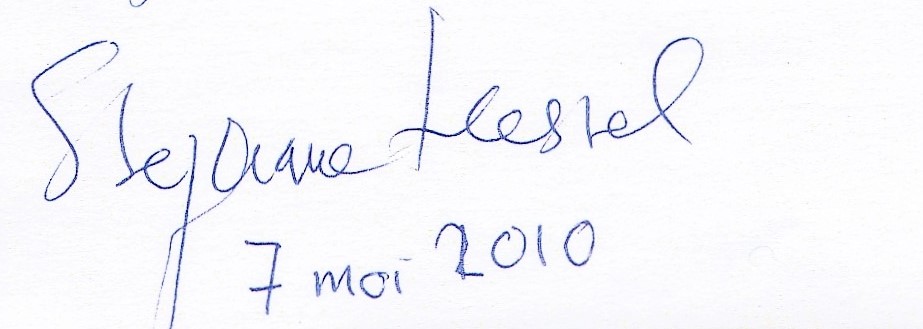 Stéphane Hessel
7 mai 2010